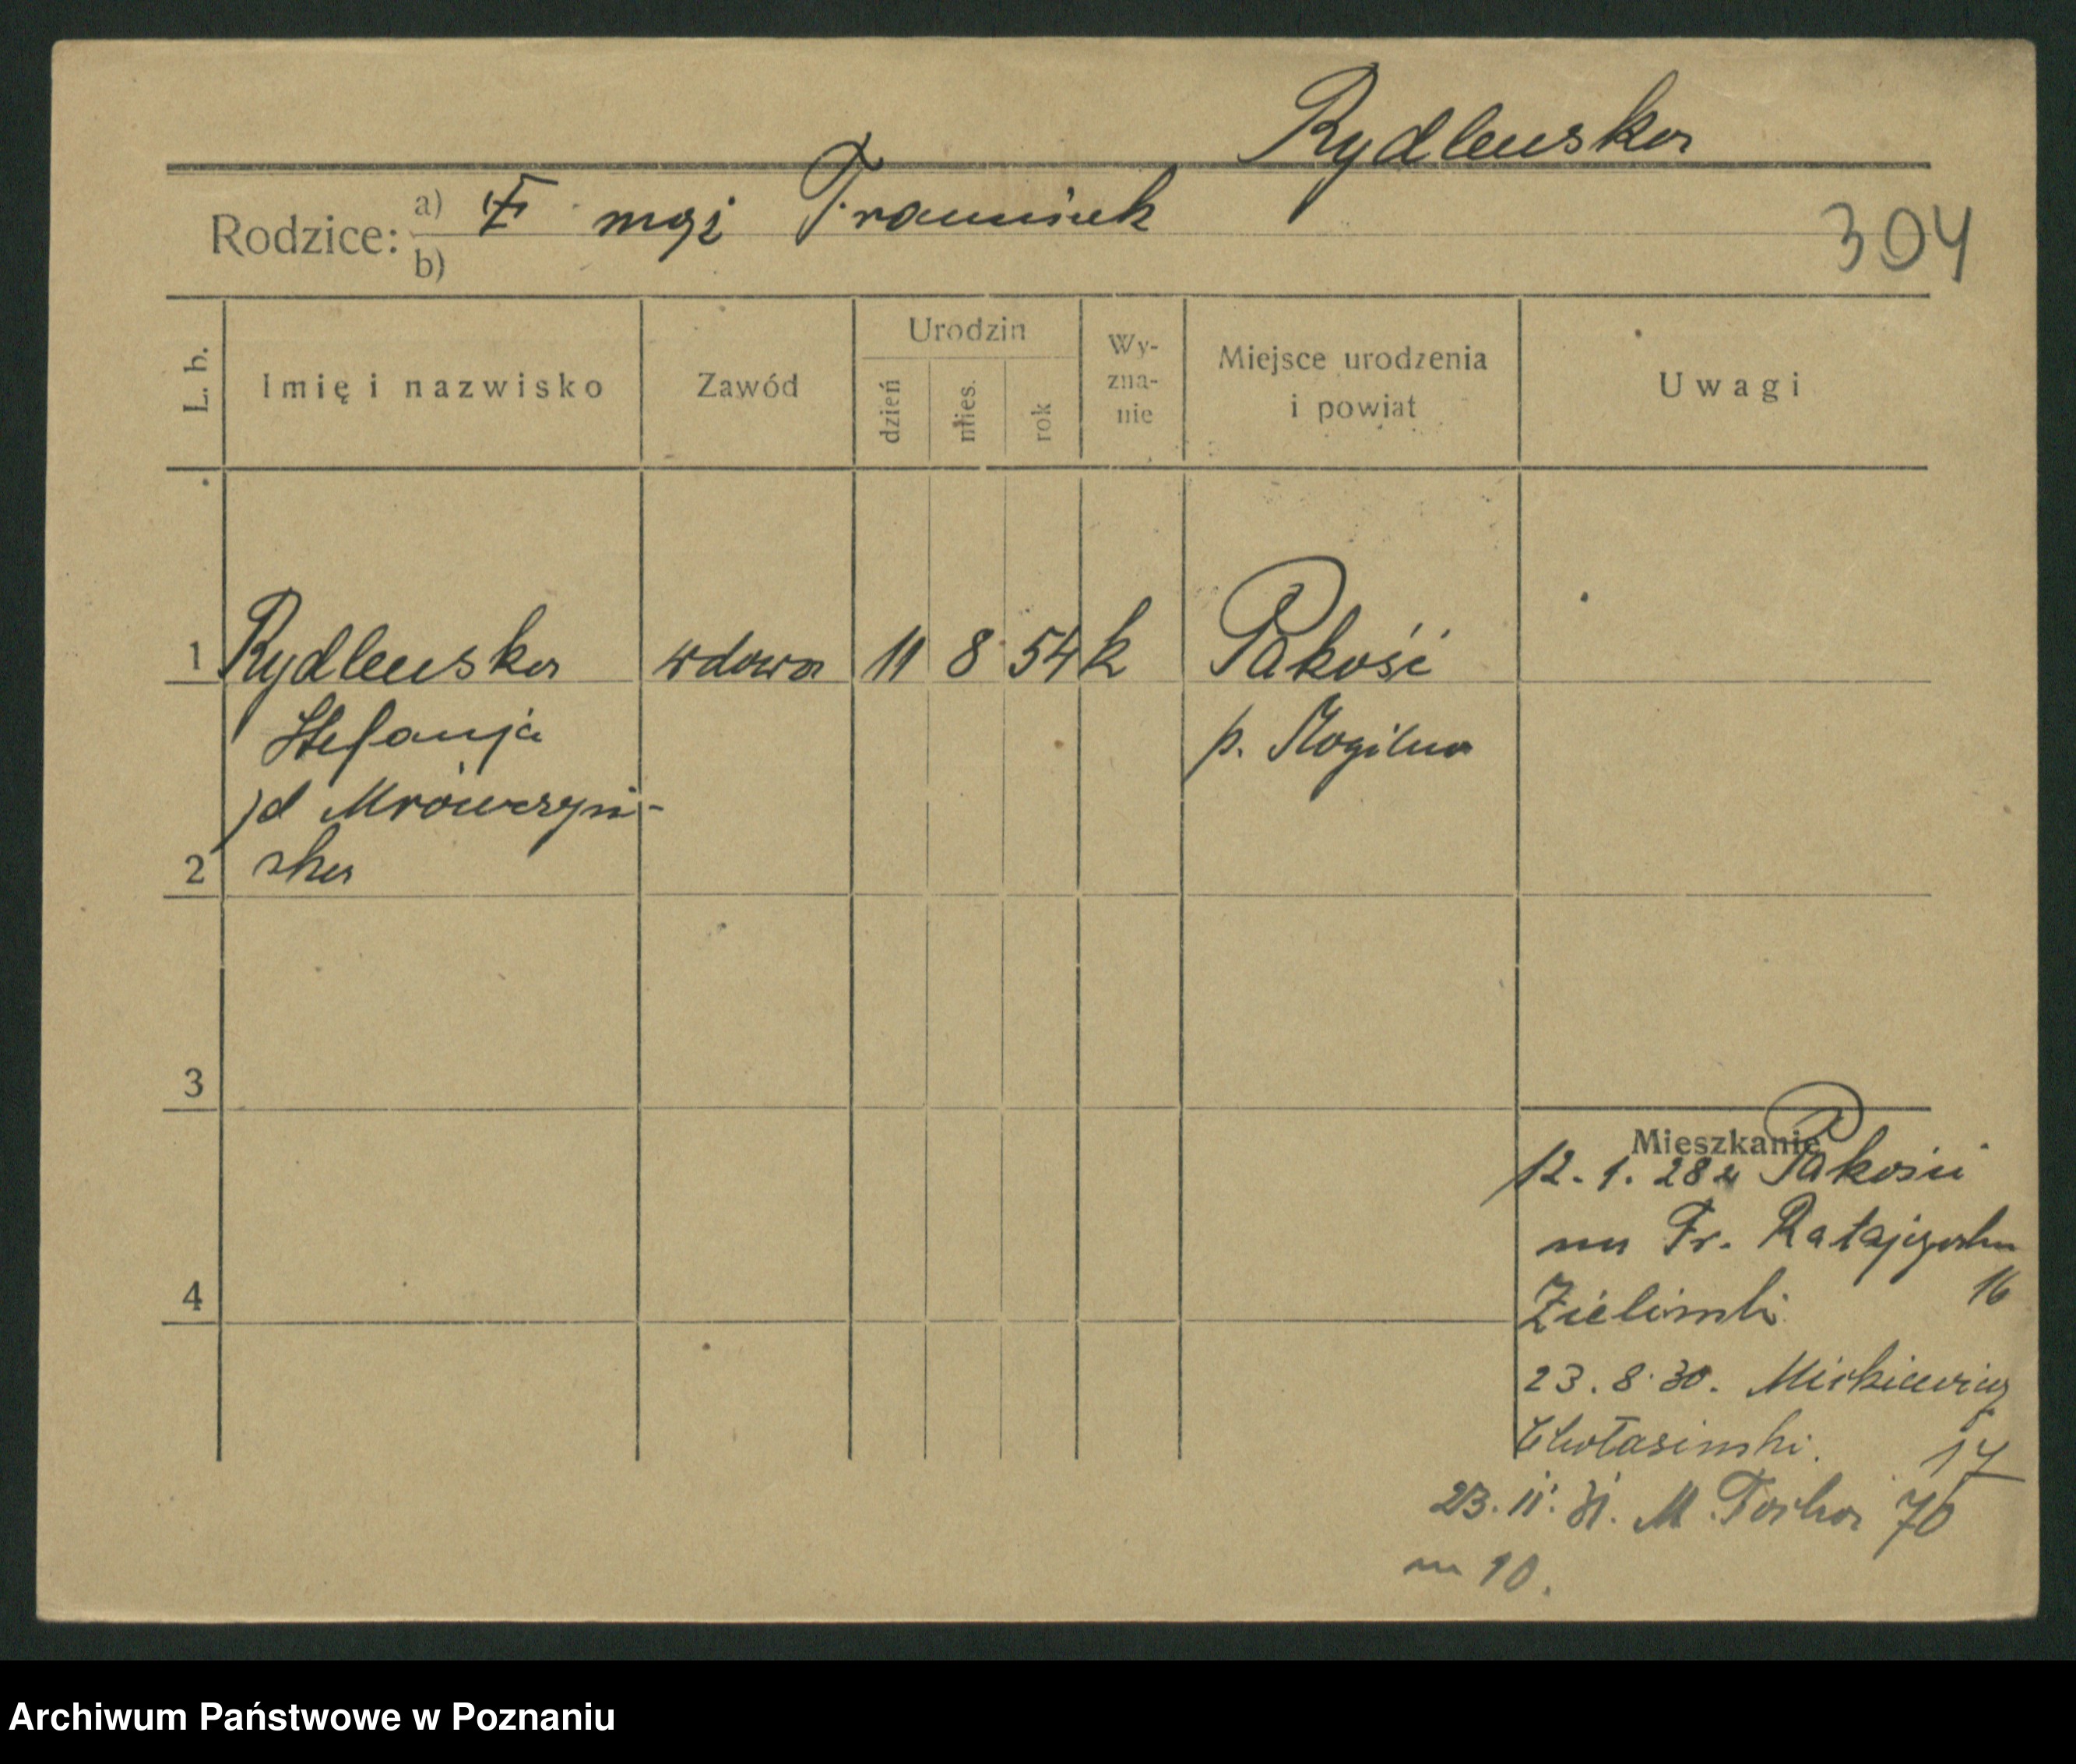 Rydlewska
Rodzice: a) I mąż Franciszek
b)
304
L. b.
Imię i nazwisko
Zawód
Urodzin
dzień
mies.
rok
Wy-
zna-
nie
Miejsce urodzenia
i powiat
Uwagi
1 Rydlewska wdowa 11 8 54 k Pakość
Stefanja p. Mogilno
/d Mrówczyń-
2 ska
3
4
Mieszkanie
12. 1. 28 z Pakości
na Fr. Ratajczaka
16
Zieliński
23. 8. 30. Mickiewicz
17
23. 11. 31. M. Focha 70
m 10.
Archiwum Państwowe w Poznaniu